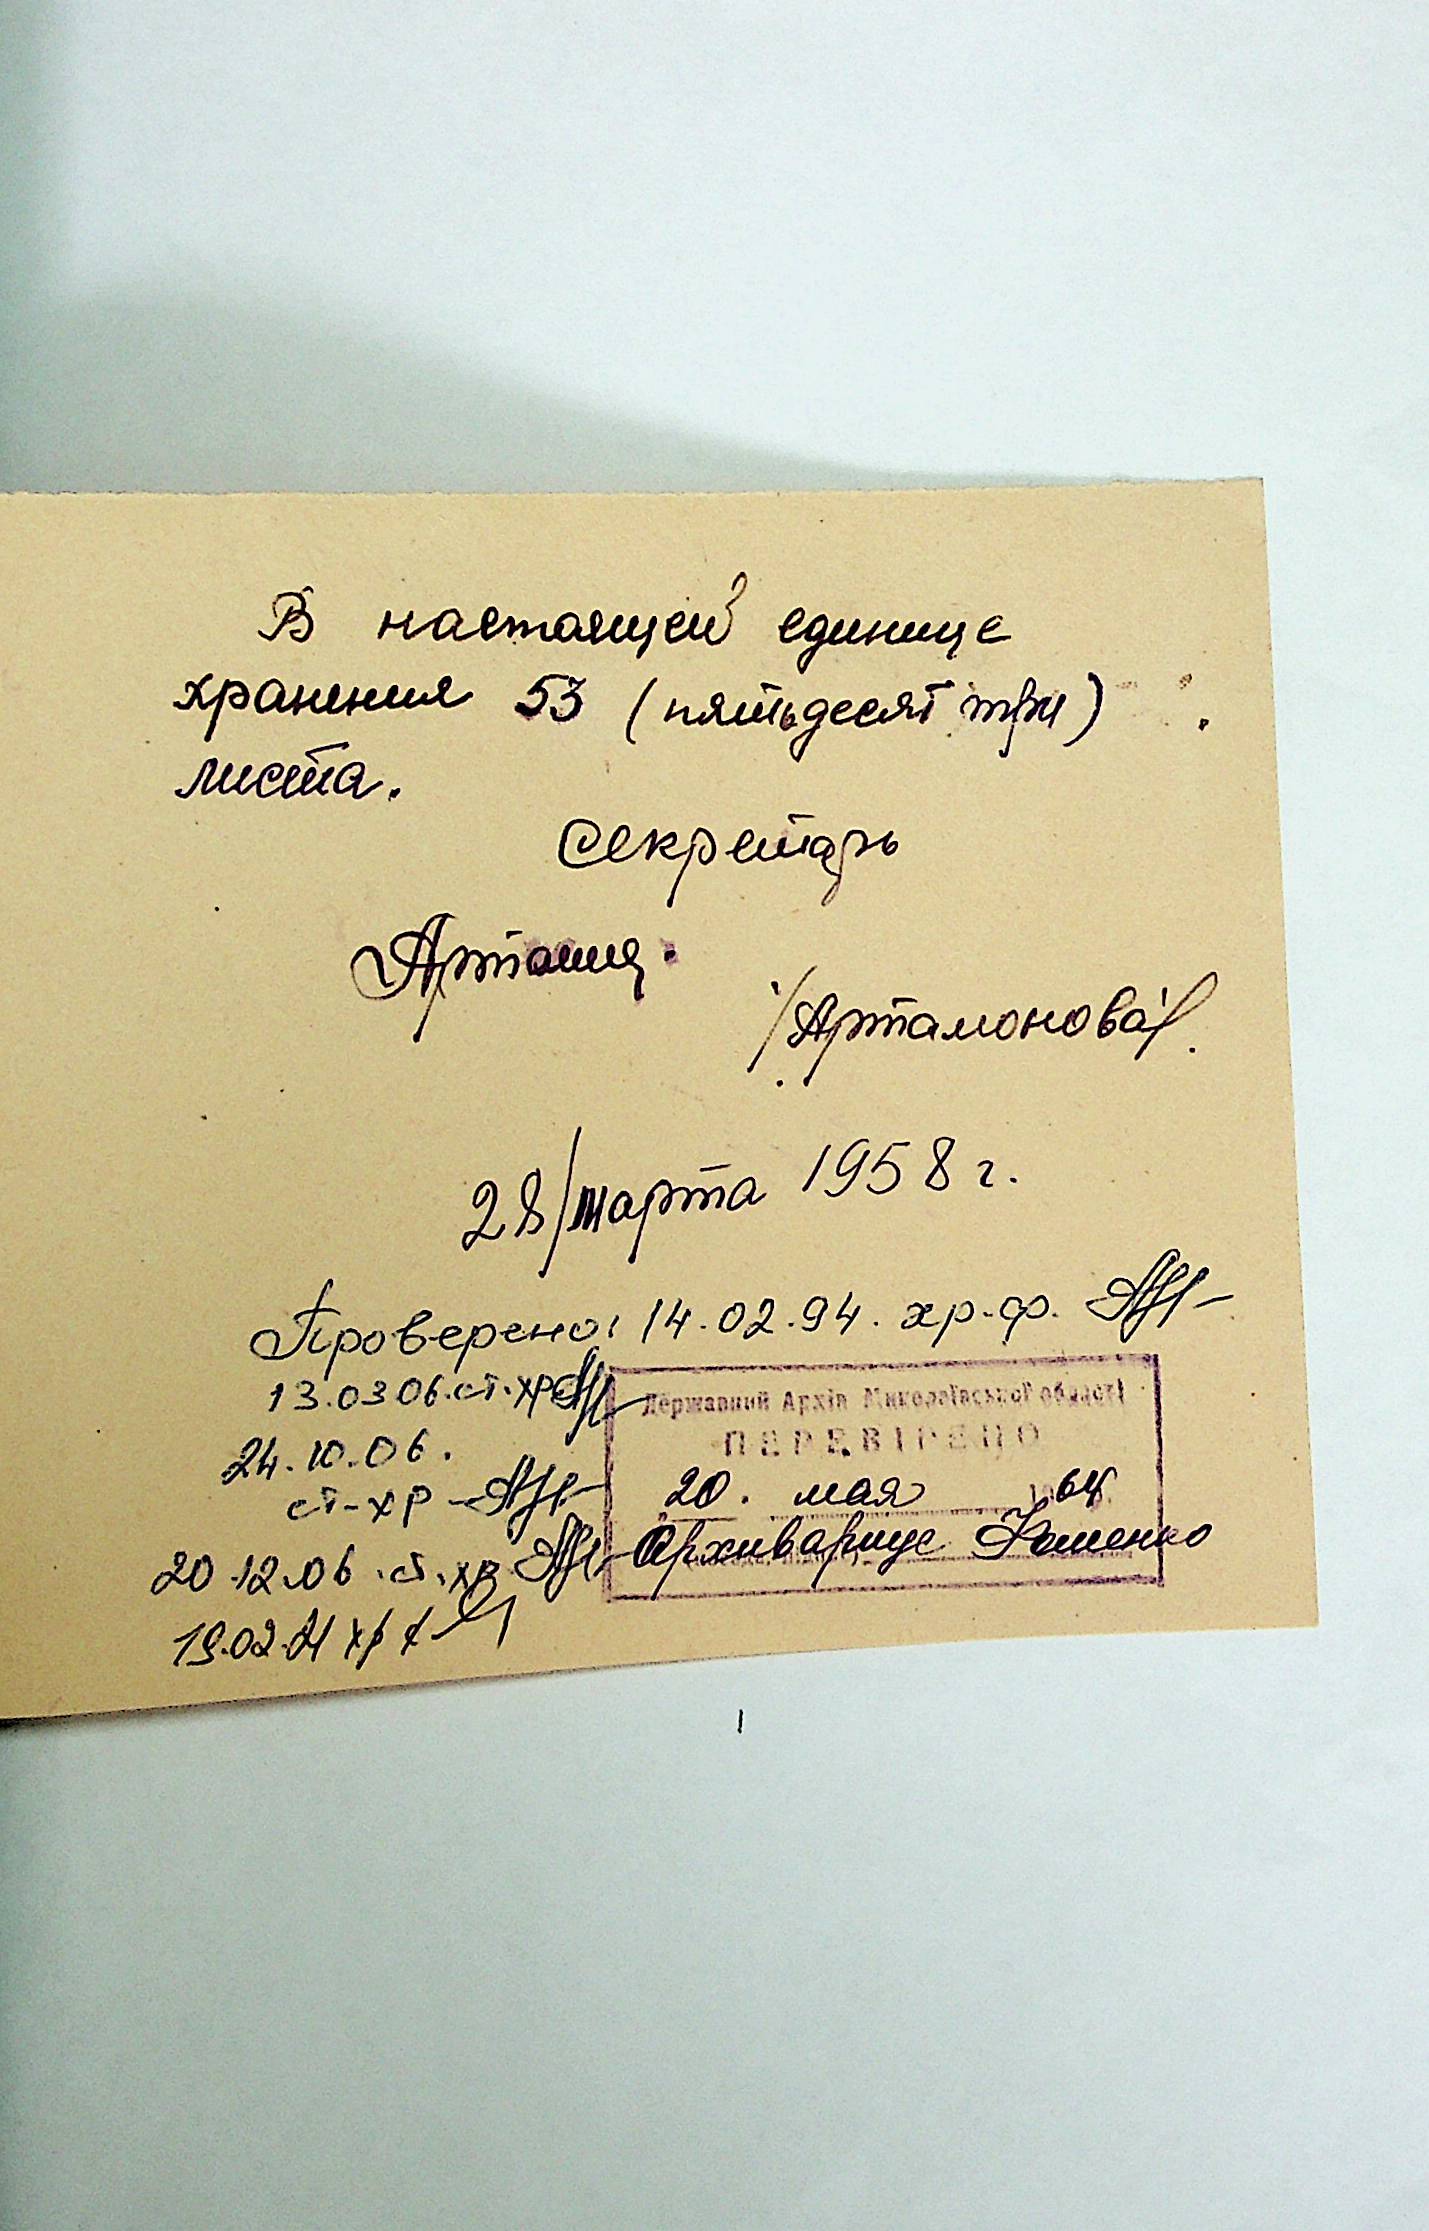 В настоящей единице
хранения 53 (пятьдесят три)
листа.
Секретарь
/Артамонова/.
28/марта 1958 г.
Проверено: 14.02.94. хр.ф.
13.03 06. ст. хр
24.10.06.
ст-хр
20.12.06. ст. хр
19.02.21 хр
Державний Архів Миколаївської області
ПЕРЕВІРЕНО
20. мая 64
Архивариус